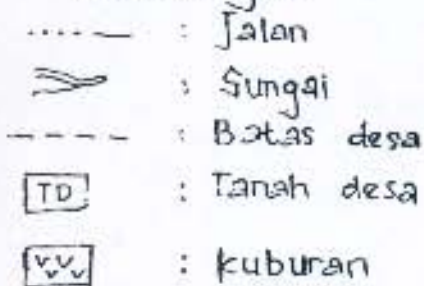 : Jalan
: Sungai
: Batas desa
TD : Tanah desa
: kuburan